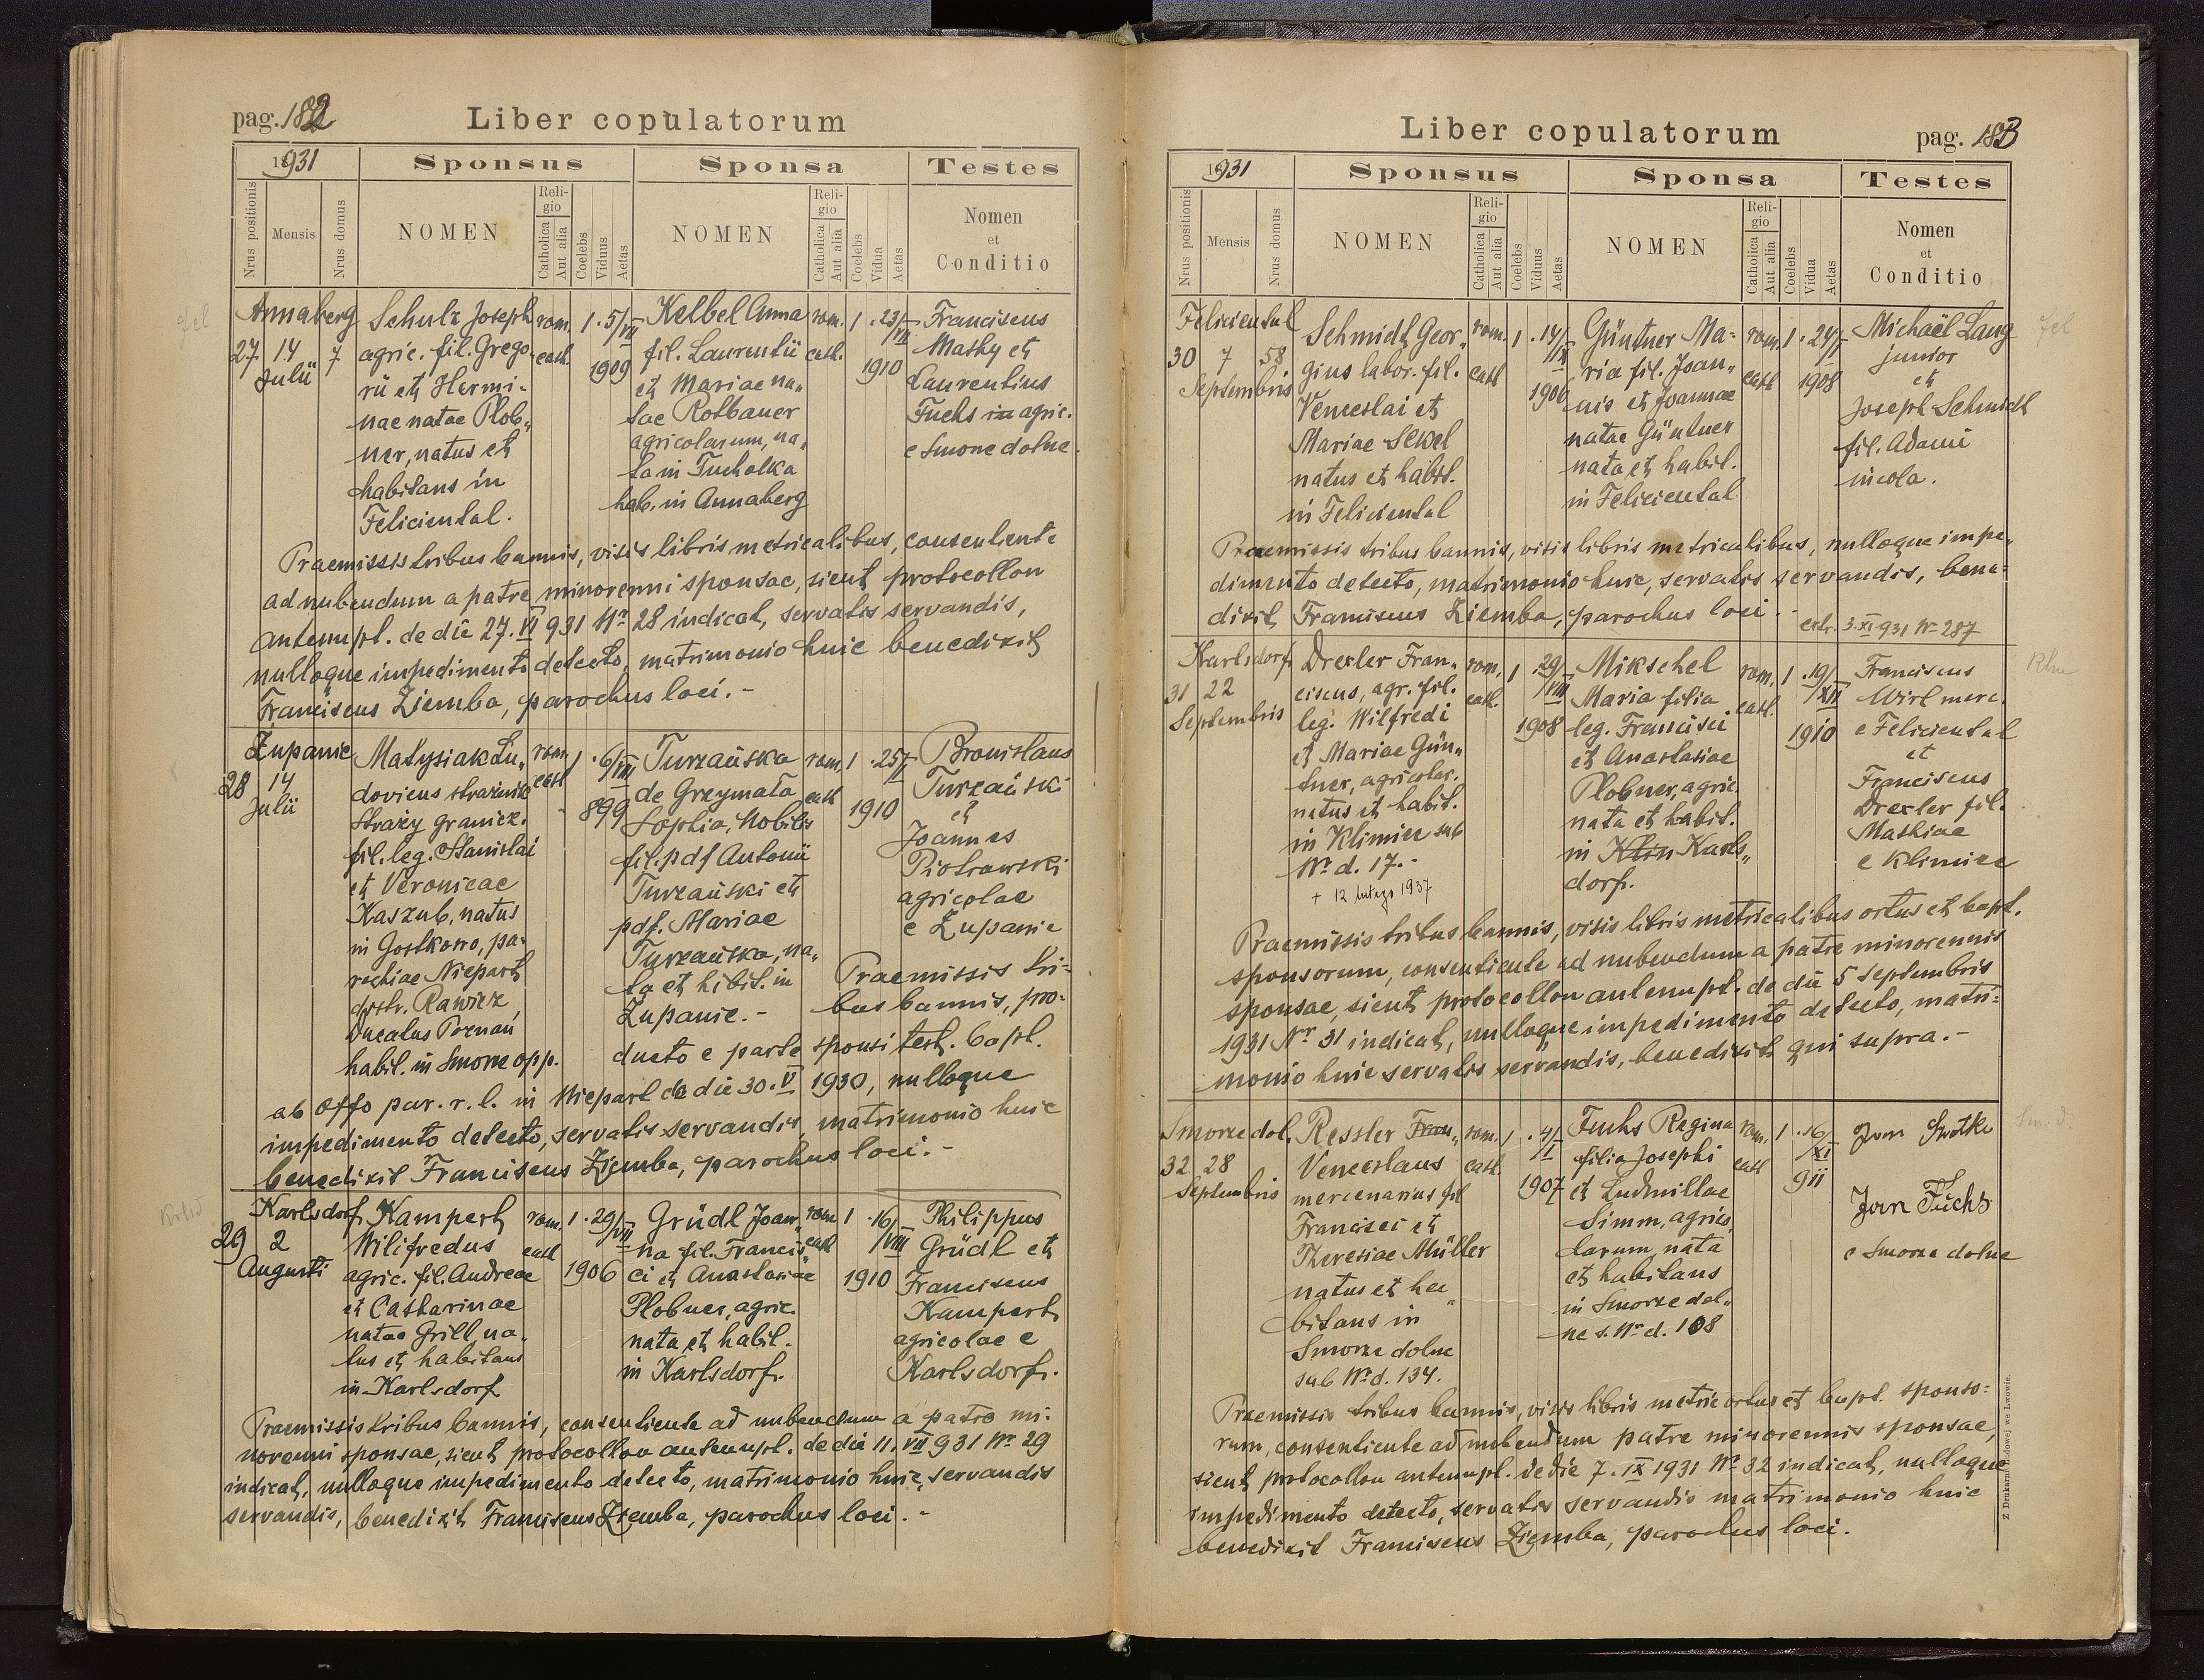 pag. 182
Liber copulatorum
1931
Sponsus
Sponsa
Testes
Nrus positionis
Mensis
Nrus domus
NOMEN
Religio
Catholica
Aut alia
Coelebs
Viduus
Aetas
NOMEN
Religio
Catholica
Aut alia
Coelebs
Vidua
Aetas
Nomen
et
Conditio
Annaberg
27 14 7
Julii
Schulz Joseph
agric. fil. Grego-
rii et Hermi-
nae natae Plob„
ner, natus et
habitans in
Feliciental.
rom. cath. 1 . 5/VII 1909
Kelbel Anna
fil. Laurentii
et Mariae na„
tae Rotbauer
agricolarum, na„
ta in Tucholka
hab. in Annaberg
rom. cath. 1 . 23/VII 1910
Franciscus
Mathy et
Laurentius
Fuchs agric.
e Smorze dolne.
Praemissis tribus bannis, visis libris metricalibus, consentente
ad nubendum a patre minorenni sponsae, sicut protocollon
antenupt. de die 27. VI 931 Nr 28 indicat, servatis servandis,
nulloque impedimento detecto, matrimonio huic benedixit
Franciscus Ziemba, parochus loci. -
Zupanie
28 14
Julii
Matysiak Lu„
dovicus strażnik
Straży granicz.
fil. leg. Stanislai
et Veronicae
Kaszub, natus
in Gostkowo, pa-
rochiae Niepart
distr. Rawicz
Ducatus Poznań
habit. in Smorze opp.
rom. cath 1 . 6/VIII 899
Turzańska
de Grzymała
Sophia, Nobilis
fil. pdf Antonii
Turzański et
pdf. Mariae
Turzańska, na„
ta et hibit. in
Zupanie. -
rom. cath 1 . 25/I 1910
Bronislaus
Turzański
et
Joannes
Piotrowski
agricolae
e Zupanie
Praemissis tri-
bus bannis, pro-
ducto e parte sponsi test. bapt.
ab Offo par. r. l. in Niepart de die 30. V 1930, nulloque
impedimento detecto, servatis servandis, matrimonio huic
benedixit Franciscus Ziemba, parochus loci. -
Karlsdorf
29 2
Augusti
Kampert
Wilifredus
agric. fil. Andreae
et Catharinae
natae Grill na-
tus et habitans
in Karlsdorf
rom. cath 1 . 29/VII 1906
Grüdl Joan„
na fil. Francis„
ci et Anastasiae
Plobner, agric.
nata et habit.
in Karlsdorf.
rom cath 1 . 16/VIII 1910
Philippus
Grüdl et
Franciscus
Kampert
agricolae e
Karlsdorf.
Praemissis tribus bannis, consentiente ad nubendum a patre mi-
norenni sponsae, sicut protocollon antenupt. de die 11. VII 931 Nr 29
indicat, nulloque impedimento detecto, matrimonio huic, servandis
servandis, benedixit Franciscus Ziemba, parochus loci. -
Liber copulatorum
pag. 183
1931
Sponsus
Sponsa
Testes
Nrus positionis
Mensis
Nrus domus
NOMEN
Religio
Catholica
Aut alia
Coelebs
Viduus
Aetas
NOMEN
Religio
Catholica
Aut alia
Coelebs
Vidua
Aetas
Nomen
et
Conditio
Feliciental
30 7 58
Septembris
Schmidt Geor„
gius labor. fil.
Venceslai et
Mariae Sekel
natus et habit.
in Feliciental
rom. cath 1 . 14/IX 1906
Güntner Ma-
ria fil. Joan„
nis et Joannae
natae Güntner
nata et habit.
in Feliciental
rom. cath 1 . 24/I 1908
Michaël Lang
junior
et
Joseph Schmidt
fil. Adami
incola.
Praemissis tribus bannis, visis libris metricalibus, nulloque impe„
dimento detecto, matrimonio huic, servatis servandis, bene-
dixit Franciscus Ziemba, parochus loci. -
extr. 3. XI 931 Nr 287
Karlsdorf
31 22
Septembris
Drexler Fran„
ciscus, agr. fil.
leg. Wilfredi
et Mariae Gün„
tner, agricolar.
natus et habit.
in Klimiec sub
Nr d. 17. -
+ 12 lutego 1937
rom. cath. 1 . 29/VIII 1908
Mikschel
Maria filia
leg. Francisci
et Anastasiae
Plobner, agric.
nata et habit.
in Klin Karls„
dorf.
rom. cath. 1 . 19/XII 1910
Franciscus
Wirl merc.
e Feliciental
et
Franciscus
Drexler fil.
Mathiae
e Klimiec
Praemissis tribus bannis, visis libris metricalibus ortus et bapt.
sponsorum, consentiente ad nubendum a patre minorennis
sponsae, sicut protocollon antenupt. de die 5 Septembris
1931 Nr 31 indicat, nulloque impedimento detecto, matri-
monio huic servatis servandis, benedixit qui supra. -
Smorze dol.
32 28
Septembris
Ressler Fran„
Venceslaus
mercenarius fil
Francisci et
Theresiae Müller
natus et ha„
bitans in
Smorze dolne
sub Nr d. 134.
rom. cath. 1 . 4/I 1907
Fuchs Regina
filia Josephi
et Ludmillae
Simm, agrico„
larum, nata
et habitans
in Smorze dol„
ne s. Nr d. 108
rom. cath 1 . 16/XI 911
Jan Swotke
Jan Fuchs
e Smorze dolne
Praemissis tribus bannis, visis libris metric ortus et bapt. sponso-
rum, consentiente ad nubendum patre minorennis sponsae,
sicut protocollon antenupt. de die 7. IX 1931 Nr 32 indicat, nulloque
impedimento detecto, servatis servandis matrimonio huic
benedixit Franciscus Ziemba, parochus loci.
Z Drukarni Ludowej we Lwowie.